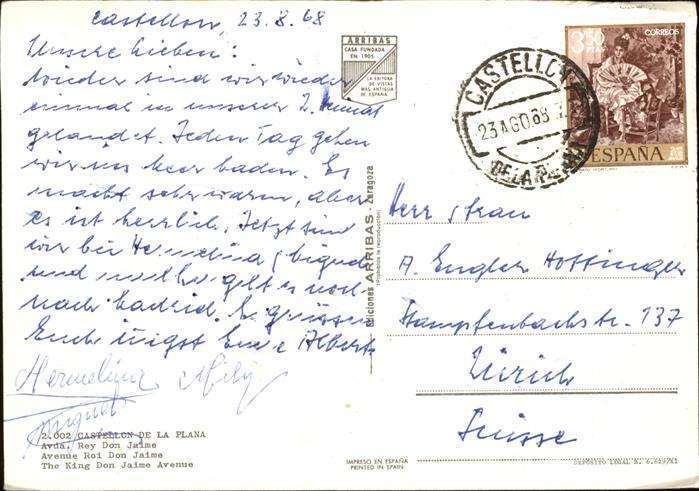 Castellon, 23.8.68
Unsere Lieben:
wieder sind wir wieder
einmal in unserer 2. Heimat
gelandet. Jeden Tag gehen
wir ins Meer baden. Es
macht sehr warm, aber
es ist herrlich. Jetzt sind
wir bei Hermelina, Miguel
und nachher geht es noch
nach Madrid. Es grüssen
Euch innigst Eure Alberts
Hermelina
Miguel
ARRIBAS
CASA FUNDADA
EN 1905
LA EDITORA
DE VISTAS
MAS ANTIGUA
DE ESPAÑA
CORREOS
3'50
PTAS
ESPAÑA
CASTELLON
23 AGO 68
DE LA PLANA
Ediciones ARRIBAS - Zaragoza
(Prohibida la reproducción)
Herr & Frau
A. Engler Hottinger
Stampfenbachstr. 137
Zürich
Suisse
2.002 CASTELLON DE LA PLANA
Avda. Rey Don Jaime
Avenue Roi Don Jaime
The King Don Jaime Avenue
IMPRESO EN ESPAÑA
PRINTED IN SPAIN
DEPÓSITO LEGAL B.